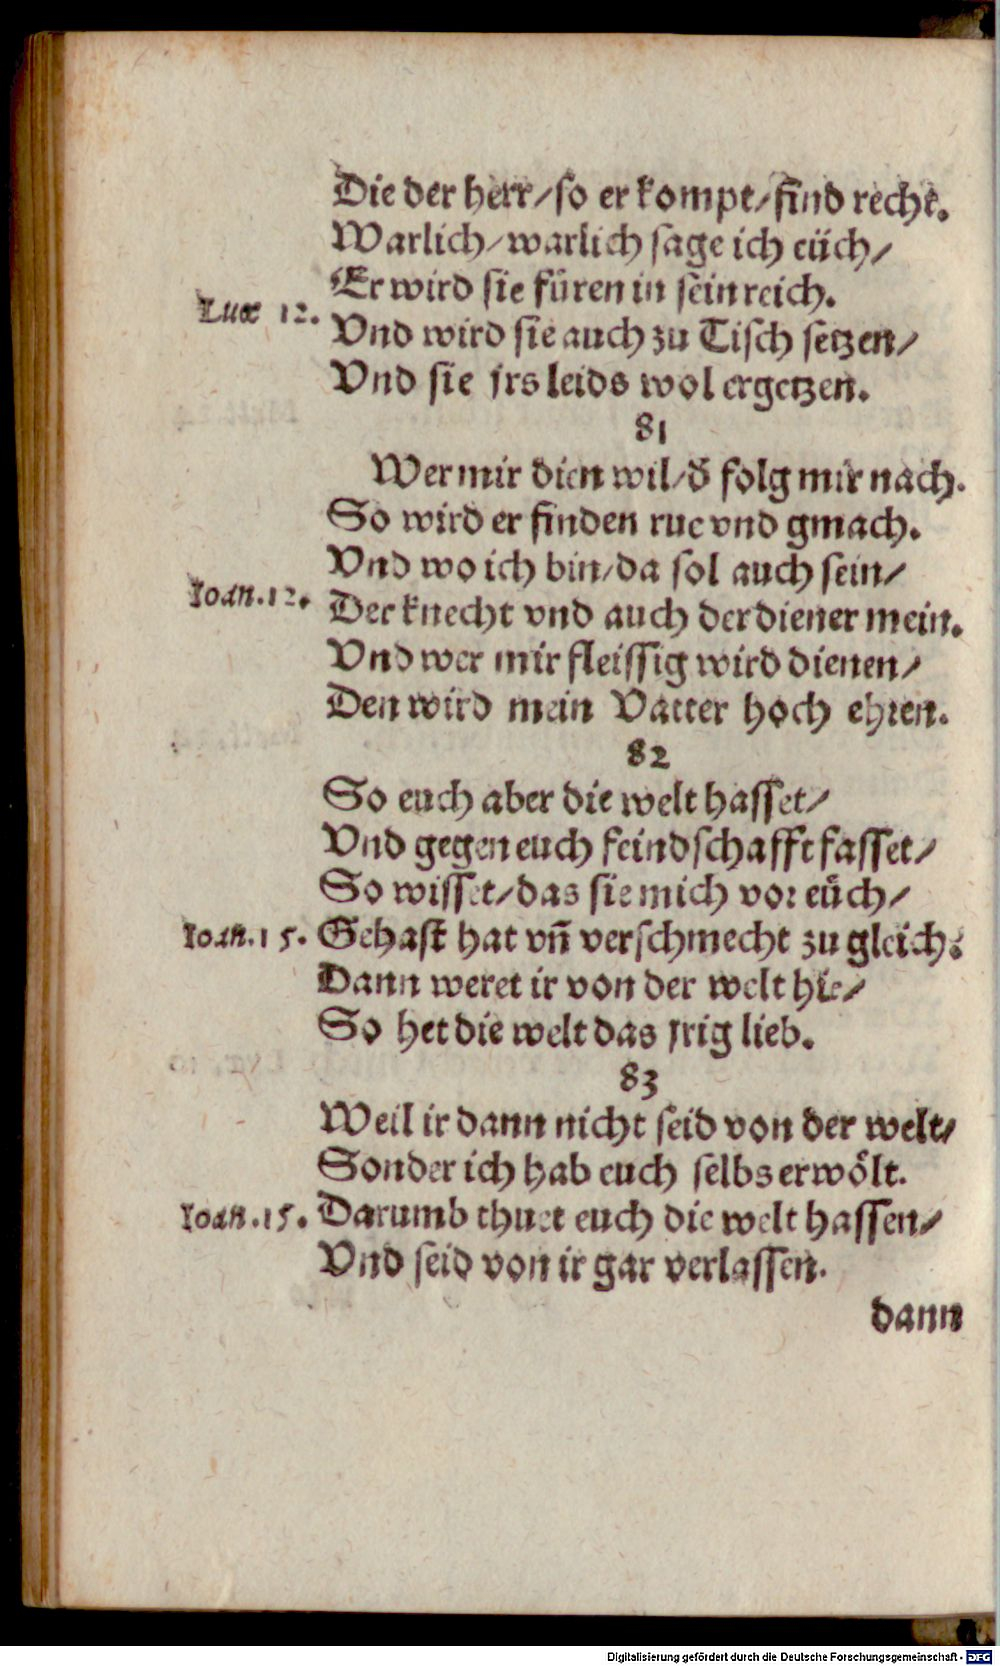 Die der herr/so er kompt/find recht.
Warlich/warlich sage ich eüch/
Er wird sie füren in sein reich.
Luce 12.
Vnd wird sie auch zu Tisch setzen/
Vnd sie jrs leids wol ergetzen.
81
Wer mir dien wil/d̄ folg mir nach.
So wird er finden rue vnd gmach.
Vnd wo ich bin/da sol auch sein/
Ioan.12.
Der knecht vnd auch der diener mein.
Vnd wer mir fleissig wird dienen/
Den wird mein Vatter hoch ehren.
82
So euch aber die welt hasset/
Vnd gegen euch feindschafft fasset/
So wisset/das sie mich vor eüch/
Ioan.15.
Gehast hat vn̄ verschmecht zu gleich.
Dann weret ir von der welt hie/
So het die welt das jrig lieb.
83
Weil ir dann nicht seid von der welt/
Sonder ich hab euch selbs erwölt.
Ioan.15.
Darumb thuet euch die welt hassen/
Vnd seid von ir gar verlassen.
dann
Digitalisierung gefördert durch die Deutsche Forschungsgemeinschaft - DFG